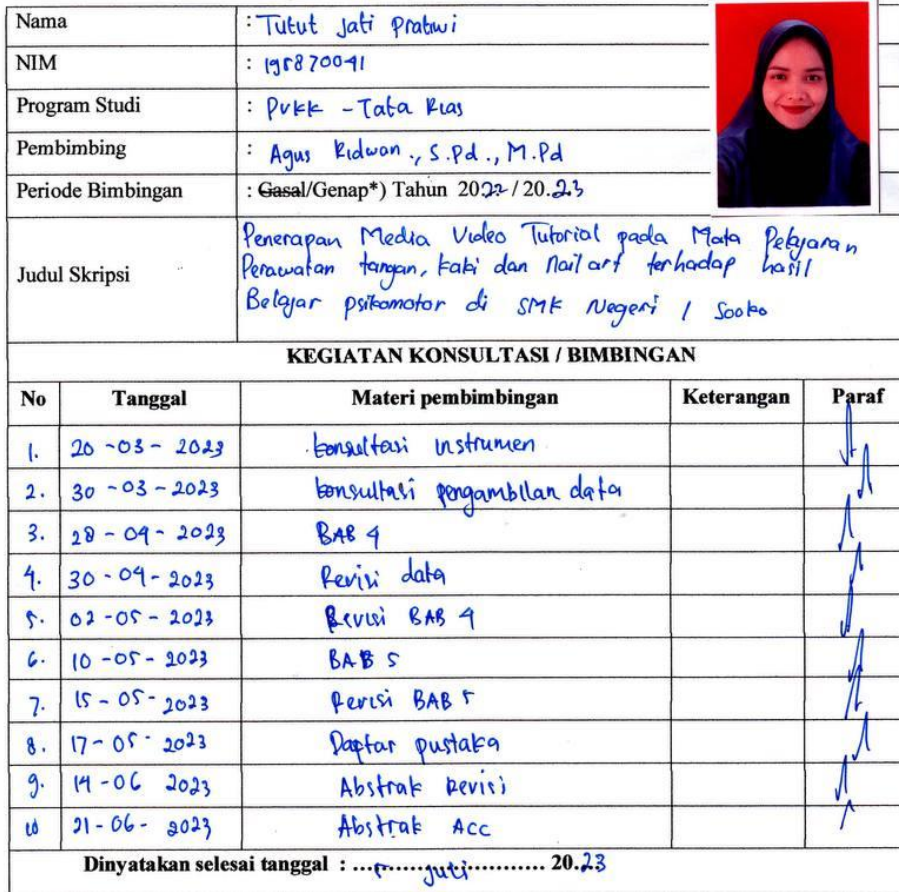 Nama : Tutut Jati Pratiwi
NIM : 195870041
Program Studi : PVKK - Tata Rias
Pembimbing : Agus Ridwan., S.Pd., M.Pd
Periode Bimbingan : Gasal/Genap*) Tahun 2022 / 20.23
Judul Skripsi
Penerapan Media Video Tutorial pada Mata Pelajaran
Perawatan tangan, kaki dan Nail art terhadap hasil
Belajar psikomotor di SMK Negeri 1 Sooko
KEGIATAN KONSULTASI / BIMBINGAN
No Tanggal Materi pembimbingan Keterangan Paraf
1. 20-03-2023 konsultasi instrumen
2. 30-03-2023 konsultasi pengambilan data
3. 28-04-2023 BAB 4
4. 30-04-2023 Revisi data
5. 02-05-2023 Revisi BAB 4
6. 10-05-2023 BAB 5
7. 15-05-2023 Revisi BAB 5
8. 17-05-2023 Daftar pustaka
9. 14-06 2023 Abstrak Revisi
10 21-06-2023 Abstrak ACC
Dinyatakan selesai tanggal : ... 5 juli ... 20.23